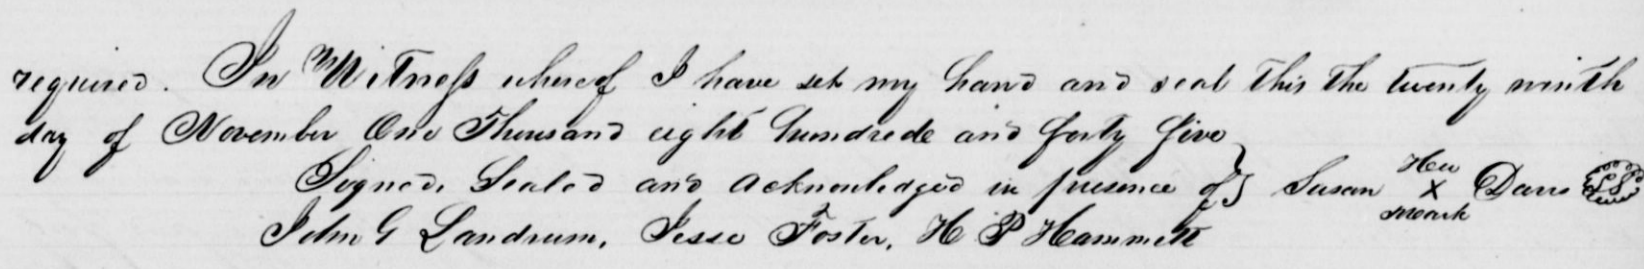 required. In Witness whereof I have set my hand and seal this the twenty ninth
day of November One Thousand eight hundrede and forty five
Signed, Sealed and acknowledged in presence of } Susan Her X mark Davis LS
John G Landrum, Jesse Foster, H P Hammett